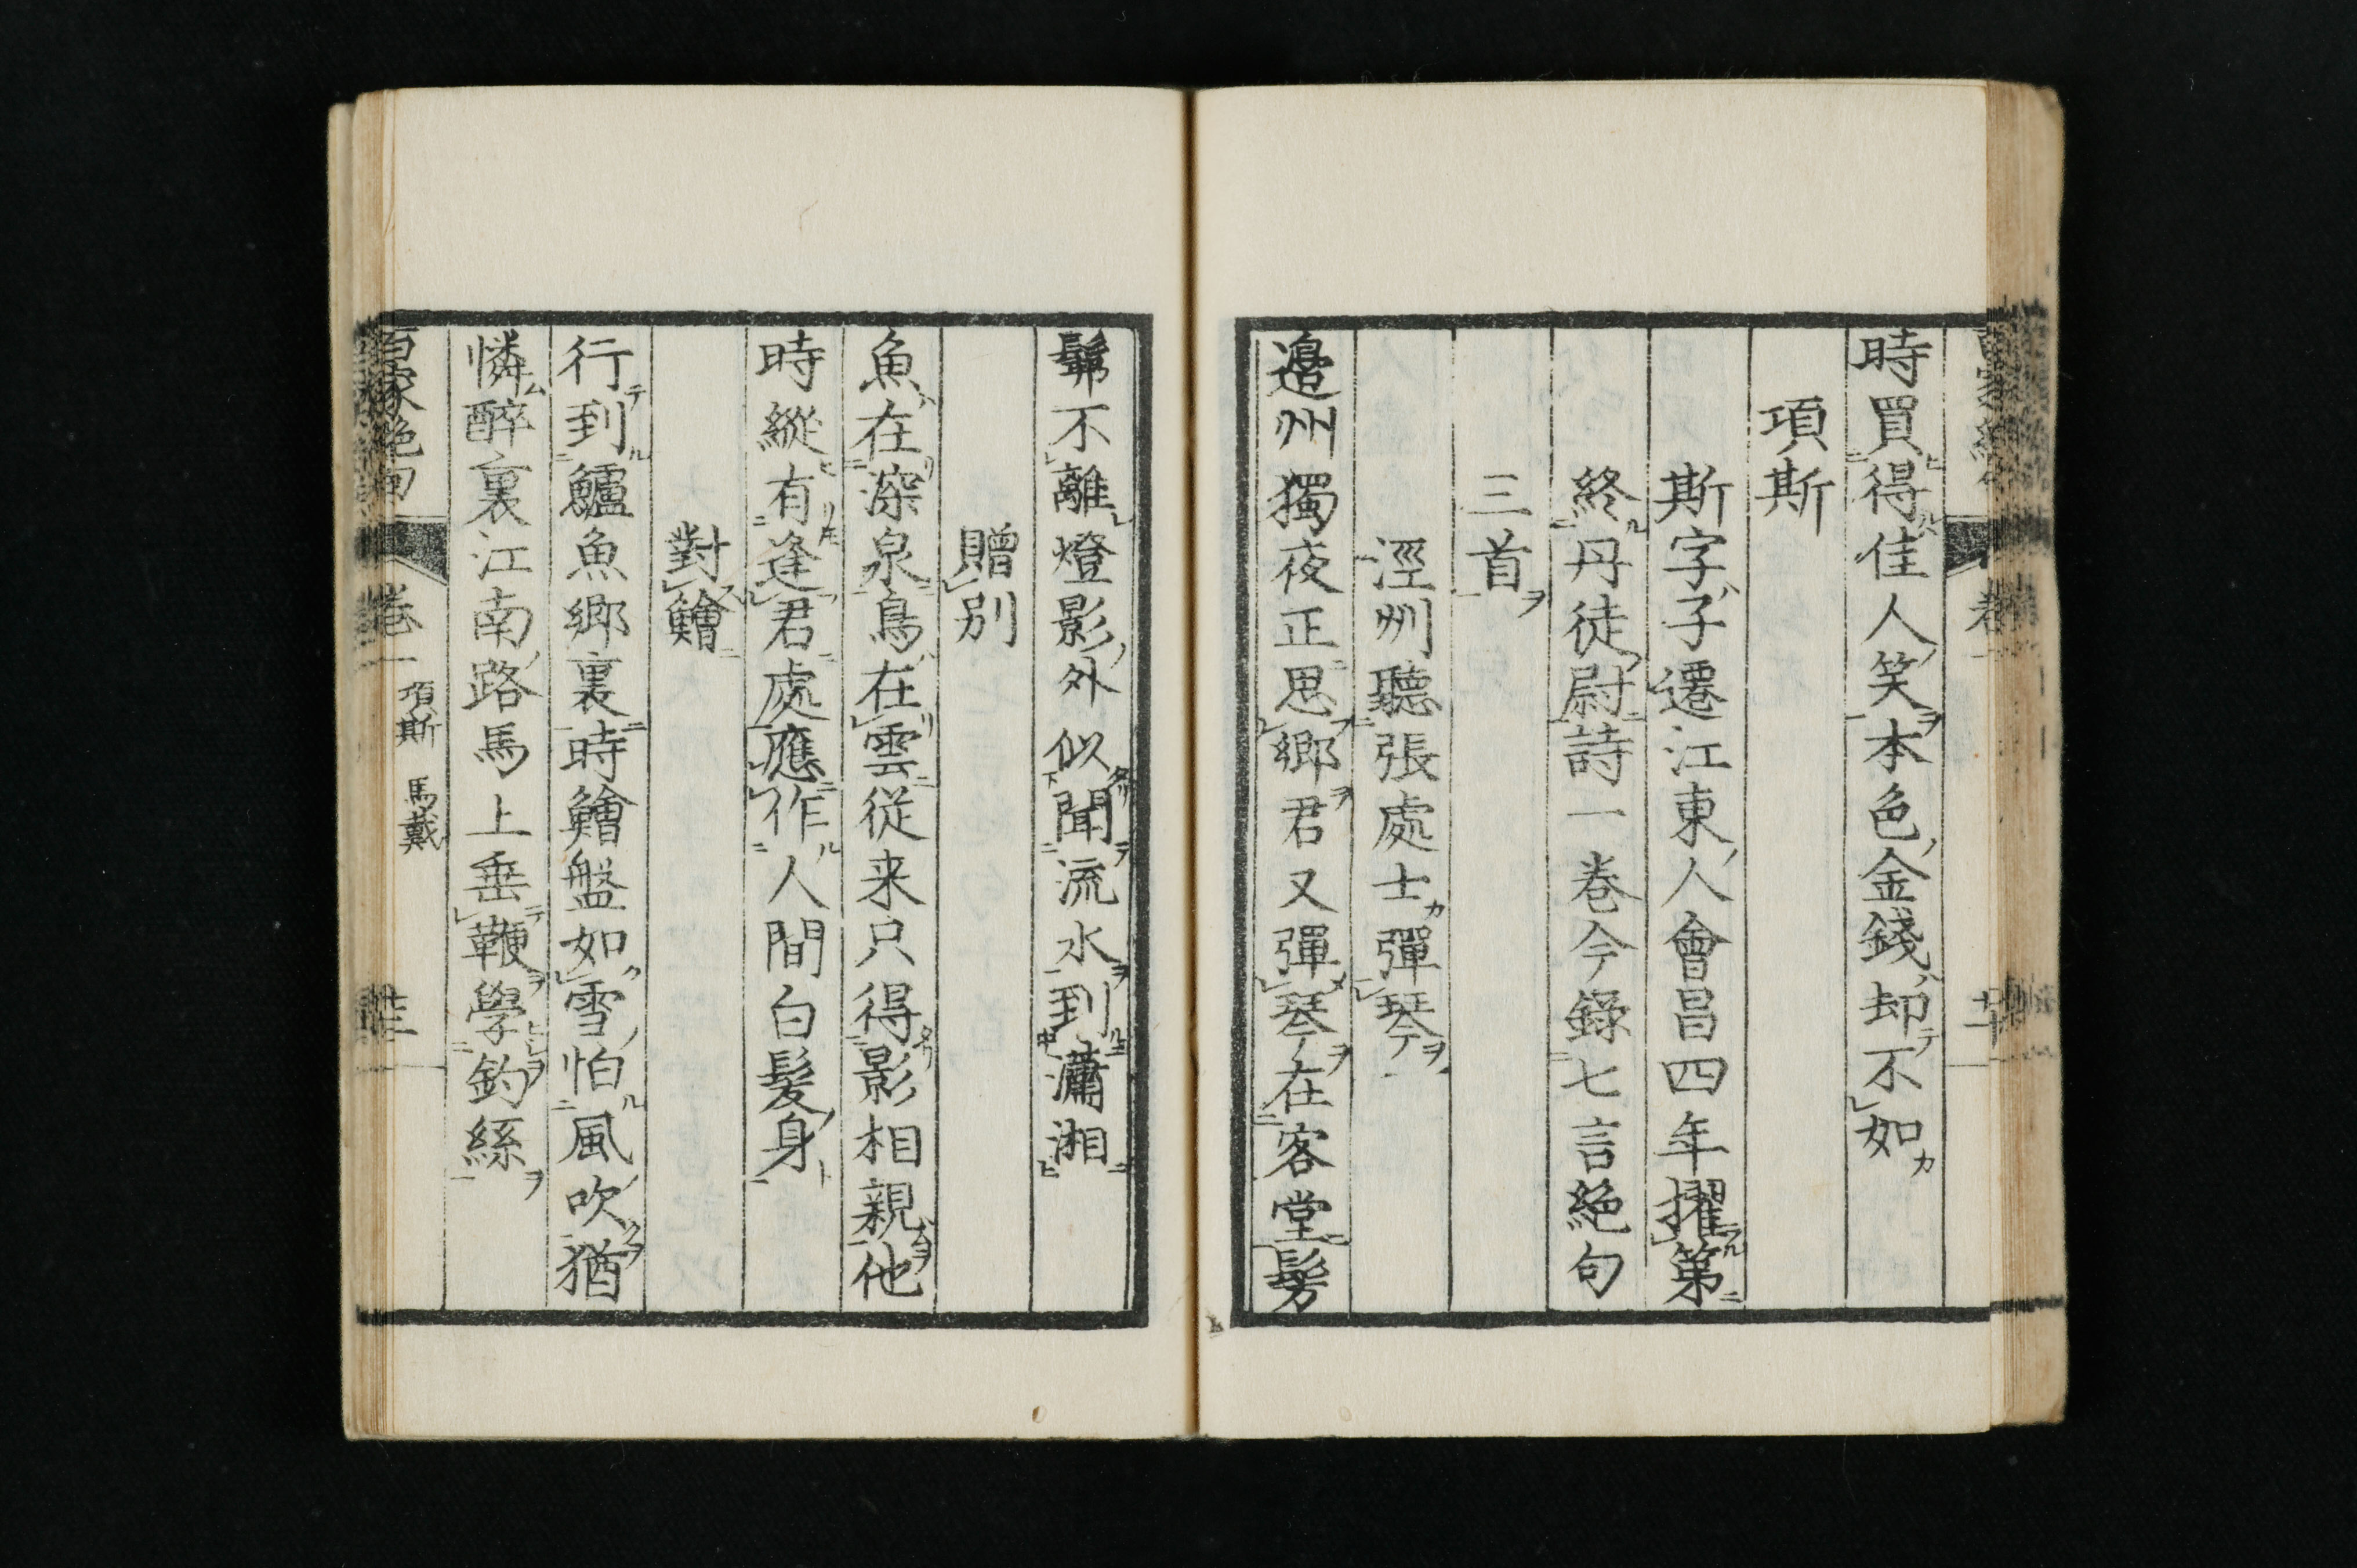 時買得佳人笑本色金錢却不如
項斯
斯字子遷江東人會昌四年擢第
終丹徒尉詩一卷今錄七言絶句
三首
涇州聽張處士彈琴
邉州獨夜正思鄉君又彈琴在客堂髣
髴不離燈影外似聞流水到瀟湘
贈别
魚在深泉鳥在雲従来只得影相親他
時縱有逢君處應作人間白髮身
對鱠
行到鱸魚鄉裏時鱠盤如雪怕風吹猶
憐醉裏江南路馬上垂鞭學釣絲
百家絶句 卷一 項斯 馬戴